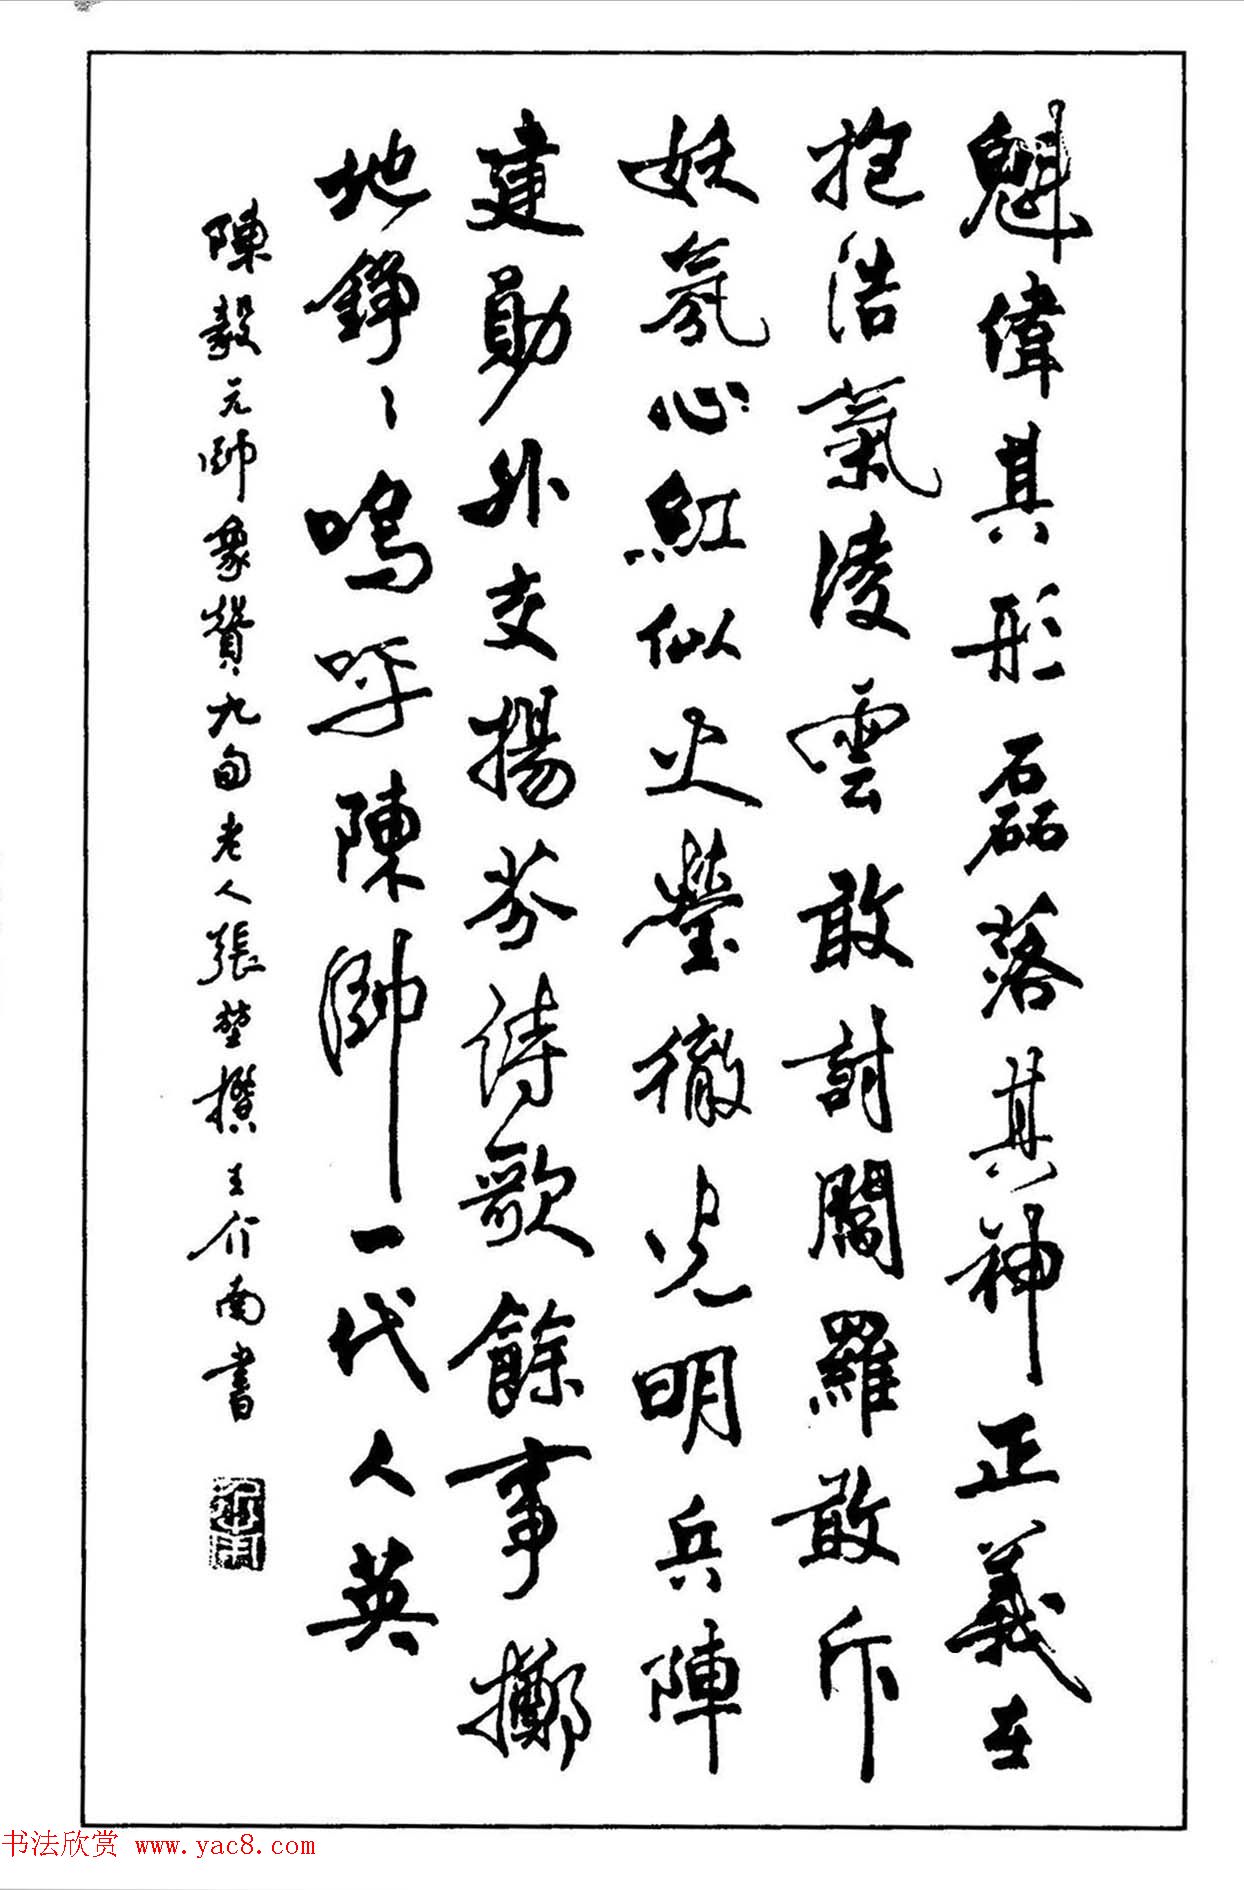 魁偉其形磊落其神正義在
抱浩氣凌雲敢討閻羅敢斥
妖氛心紅似火瑩徹光明兵陣
建勛外交揚芬詩歌餘事擲
地錚〻嗚呼陳帥一代人英
陳毅元帥象贊九旬老人張堃撰王介南書
书法欣赏 www.yac8.com